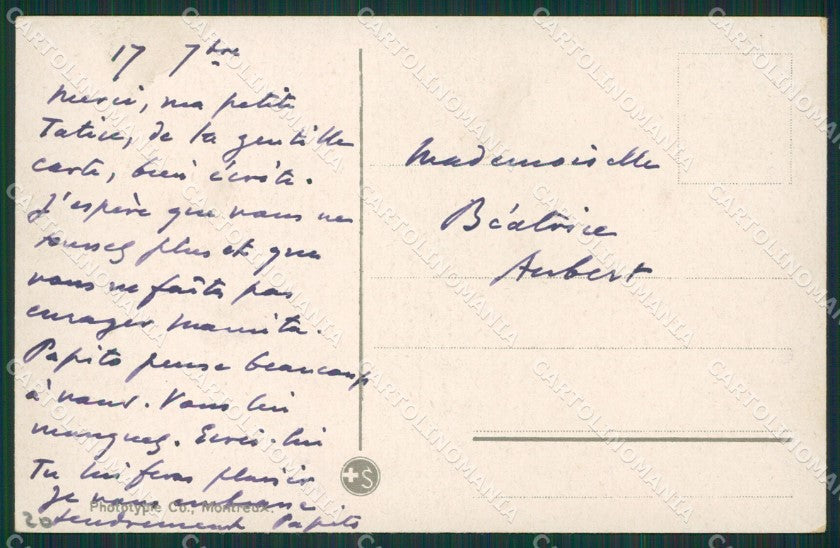 17 7bre
Merci, ma petite
Tatice, de ta gentille
carte, bien écrite.
J'espère que vous ne
toussez plus et que
vous ne faites pas
enrager Mamita.
Papito pense beaucoup
à vous. Vous lui
manquez. Ecris-lui
Tu lui feras plaisir
Je vous embrasse
tendrement Papito
Mademoiselle
Béatrice
Aubert
+S
Phototypie Co., Montreux.
20
CARTOLINOMANIA